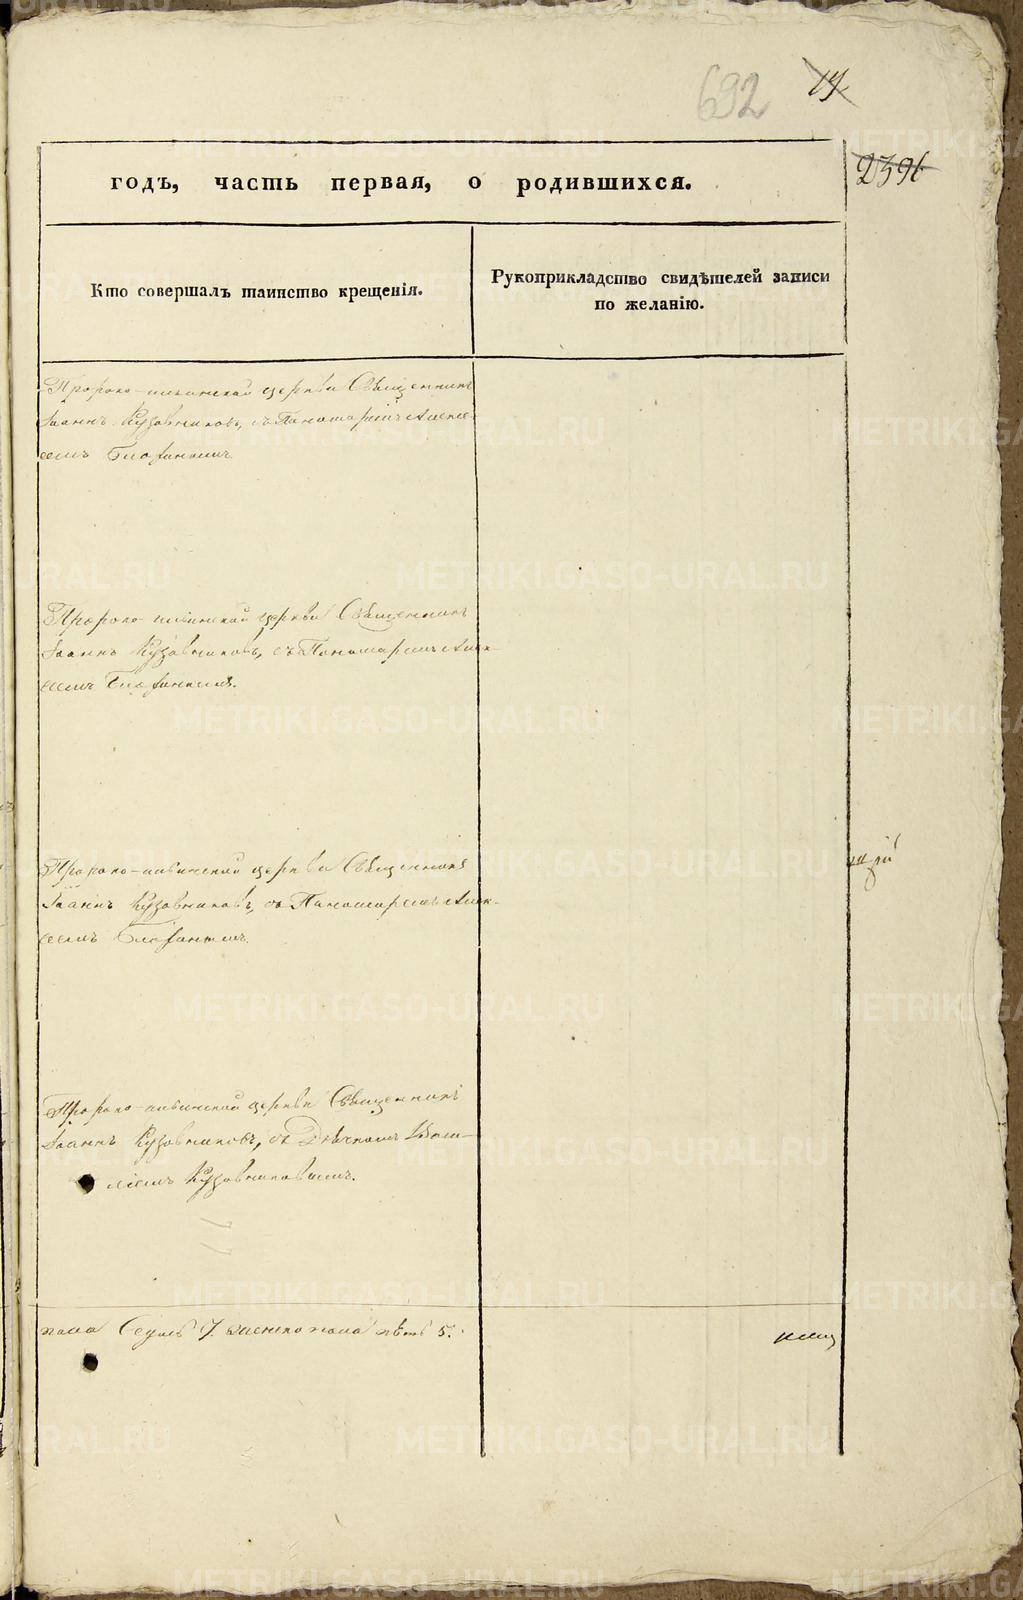 692
14
2391
годъ, часть первая, о родившихся.
Кто совершалъ таинство крещенія.
Рукоприкладство свидѣтелей записи
по желанію.
Пророко-ильинской церкви Священникъ
Іоаннъ Кузовниковъ, съ Пономаремъ Алексѣ-
емъ
Пророко-ильинской церкви Священникъ
Іоаннъ Кузовниковъ, съ Пономаремъ Алек-
сѣемъ
Пророко-ильинской церкви Священникъ
Іоаннъ Кузовниковъ, съ Пономаремъ Алек-
сѣемъ
Пророко-ильинской церкви Священникъ
Іоаннъ Кузовниковъ, съ Дьячкомъ Васи-
ліемъ Кузовниковымъ.
пола Седмь 7. женска пола пять 5.
METRIKI.GASO-URAL.RU